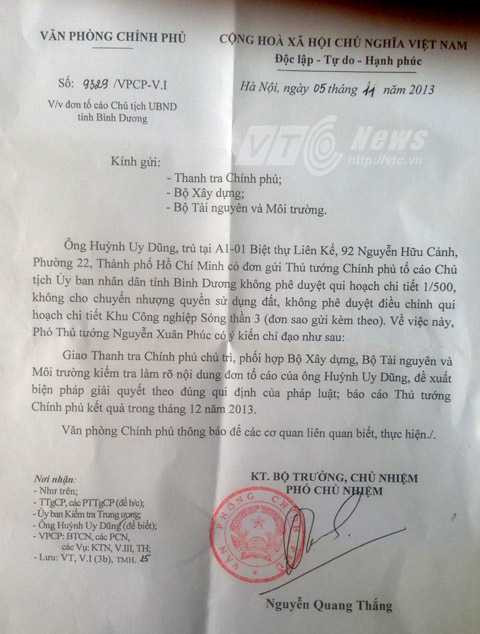 VĂN PHÒNG CHÍNH PHỦ
CỘNG HOÀ XÃ HỘI CHỦ NGHĨA VIỆT NAM
Độc lập - Tự do - Hạnh phúc
Số: 9329 /VPCP-V.I
Hà Nội, ngày 05 tháng 11 năm 2013
V/v đơn tố cáo Chủ tịch UBND
tỉnh Bình Dương
VTC News
http://vtc.vn
Kính gửi:
- Thanh tra Chính phủ;
- Bộ Xây dựng;
- Bộ Tài nguyên và Môi trường.
Ông Huỳnh Uy Dũng, trú tại A1-01 Biệt thự Liên Kế, 92 Nguyễn Hữu Cảnh,
Phường 22, Thành phố Hồ Chí Minh có đơn gửi Thủ tướng Chính phủ tố cáo Chủ
tịch Ủy ban nhân dân tỉnh Bình Dương không phê duyệt qui hoạch chi tiết 1/500,
không cho chuyển nhượng quyền sử dụng đất, không phê duyệt điều chỉnh qui
hoạch chi tiết Khu Công nghiệp Sóng thần 3 (đơn sao gửi kèm theo). Về việc này,
Phó Thủ tướng Nguyễn Xuân Phúc có ý kiến chỉ đạo như sau:
Giao Thanh tra Chính phủ chủ trì, phối hợp Bộ Xây dựng, Bộ Tài nguyên và
Môi trường kiểm tra làm rõ nội dung đơn tố cáo của ông Huỳnh Uy Dũng, đề xuất
biện pháp giải quyết theo đúng qui định của pháp luật; báo cáo Thủ tướng
Chính phủ kết quả trong tháng 12 năm 2013.
Văn phòng Chính phủ thông báo để các cơ quan liên quan biết, thực hiện./.
Nơi nhận:
- Như trên;
- TTgCP, các PTTgCP (để b/c);
- Ủy ban Kiểm tra Trung ương;
- Ông Huỳnh Uy Dũng (để biết);
- VPCP: BTCN, các PCN,
các Vụ: KTN, V.III, TH;
- Lưu: VT, V.I (3b), TMH. 15
KT. BỘ TRƯỞNG, CHỦ NHIỆM
PHÓ CHỦ NHIỆM
VĂN PHÒNG CHÍNH PHỦ
Nguyễn Quang Thắng